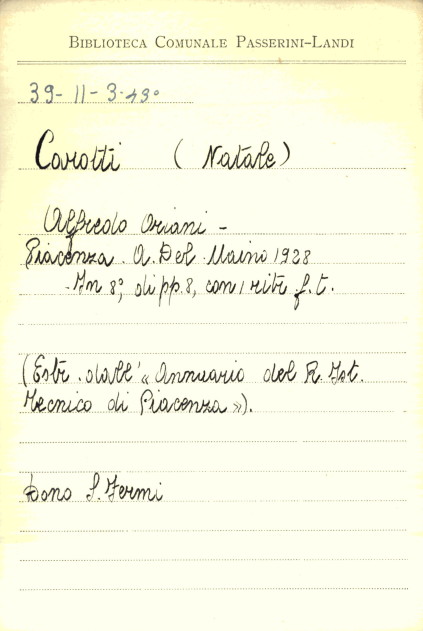 BIBLIOTECA COMUNALE PASSERINI-LANDI
39-11-3-43°
Carotti (Natale)
Alfredo Oriani -
Piacenza. A. Del Maino 1928
In 8°, di pp. 8, con 1 ritr. f. t.
(Estr. dall' « Annuario del R. Ist.
Tecnico di Piacenza »).
Dono S. Fermi